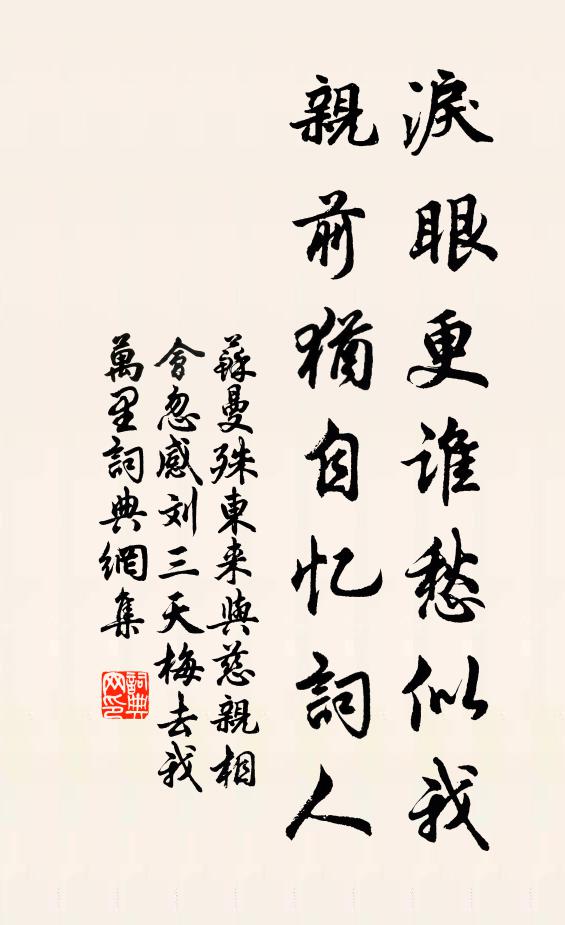 淚眼更誰愁似我
親前猶自忆詞人
蘇曼殊東来與慈親相
會忽感刘三天梅去我
萬里詞典網集
詞典网印